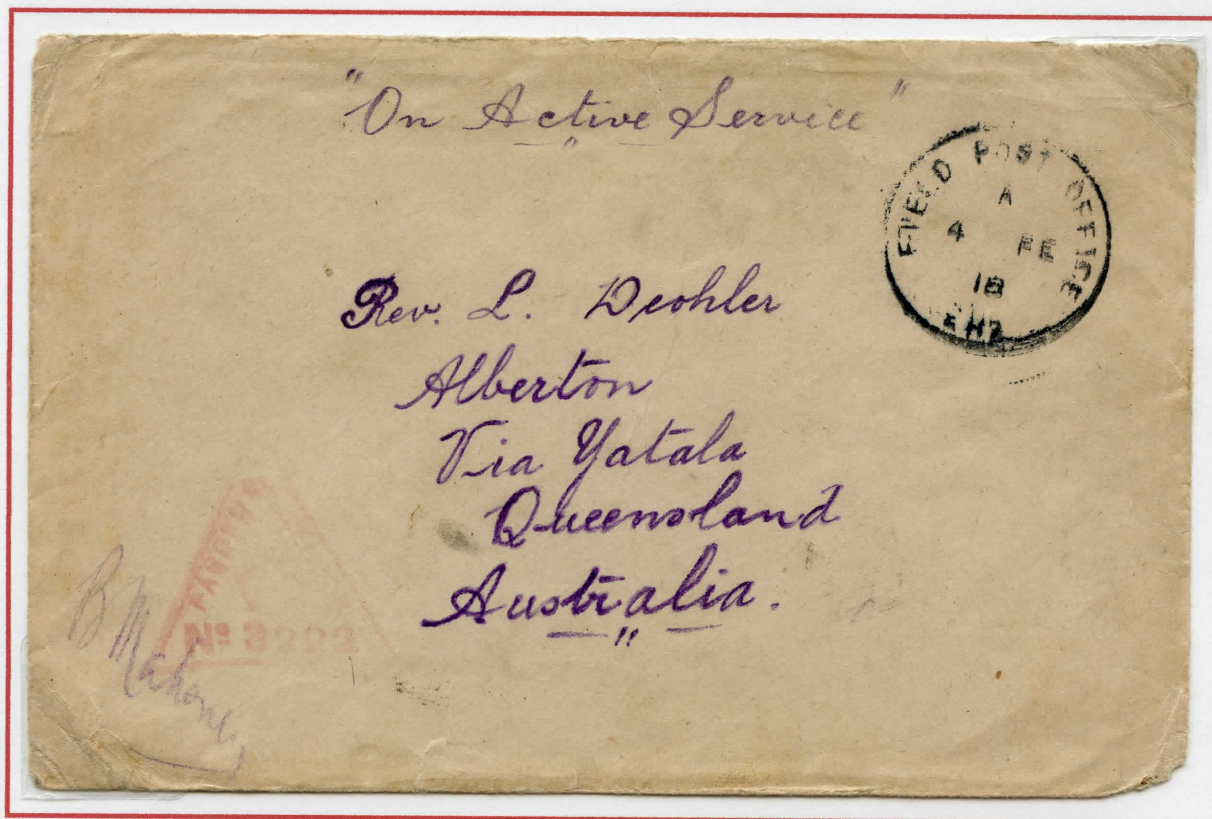 "On Active Service"
FIELD POST OFFICE
A
4 FE
18
Rev. L. Deohler
Alberton
Via Yatala
Queensland
Australia.
PASSED
No
B Mahoney